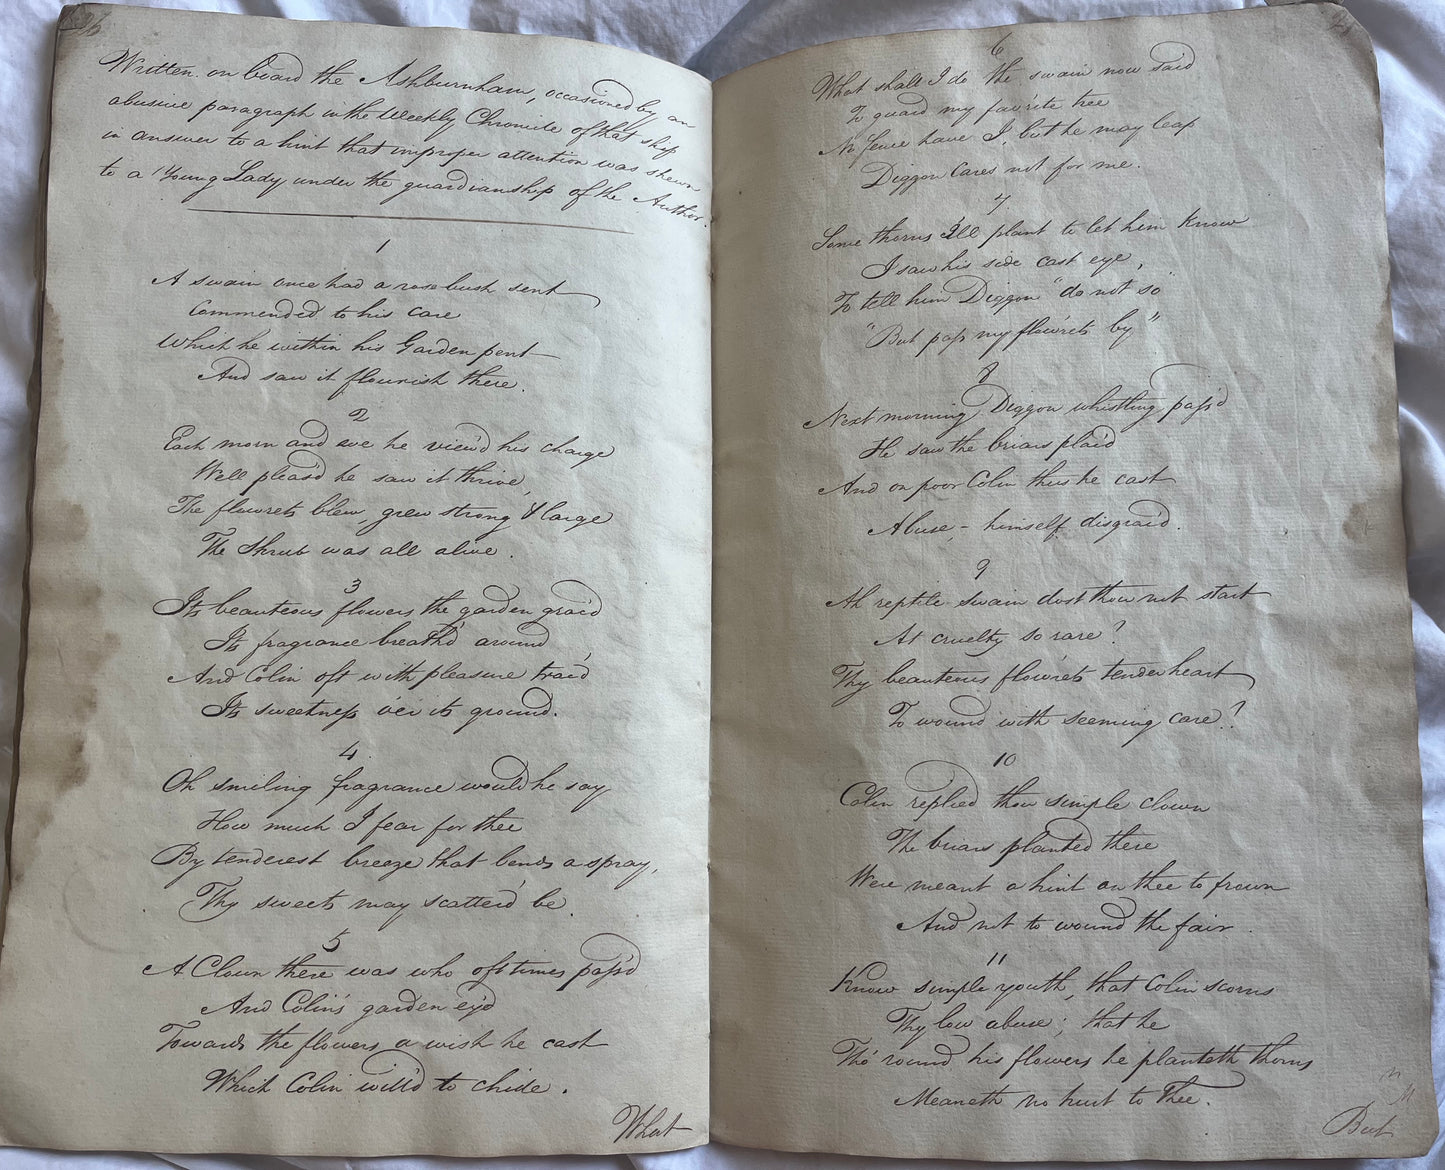 26
Written on board the Ashburnham, occasioned by an
abusive paragraph in the Weekly Chronicle of that ship
in answer to a hint that improper attention was shewn
to a Young Lady under the guardianship of the Author.
1
A swain once had a rose bush sent
Commended to his care
Which he within his Garden pent
And saw it flourish there.
2
Each morn and eve he view'd his charge
Well pleas'd he saw it thrive,
The flowrets blew, grew strong & large
The Shrub was all alive.
3
Its beauteous flowers the garden grac'd
Its fragrance breath'd around,
And Colin oft with pleasure trac'd
Its sweetness o'er its ground.
4
Oh smiling fragrance would he say
How much I fear for thee
By tenderest breeze that bends a spray,
Thy sweets may scatter'd be.
5
A Clown there was who oft times pass'd
And Colin's garden ey'd
Towards the flowers a wish he cast
Which Colin will'd to chide.
What
6
What shall I do the swain now said
To guard my fav'rite tree
No fence have I, but he may leap
Diggon Cares not for me.
7
Some thorns I'll plant to let him know
I saw his side cast eye,
To tell him Diggon "do not so"
"But pass my flow'rets by"
8
Next morning Diggon whistling pass'd
He saw the briars plac'd
And on poor Colin thus he cast
Abuse, - himself disgrac'd.
9
Ah reptile swain dost thou not start
At cruelty so rare?
Thy beauteous flow'rets tender heart
To wound with seeming care?
10
Colin replied thou simple clown
The briars planted there
Were meant a hint on thee to frown
And not to wound the fair.
11
Know simple youth, that Colin scorns
Thy low abuse; that he
Tho' round his flowers he planteth thorns
Meaneth no hurt to Thee.
But